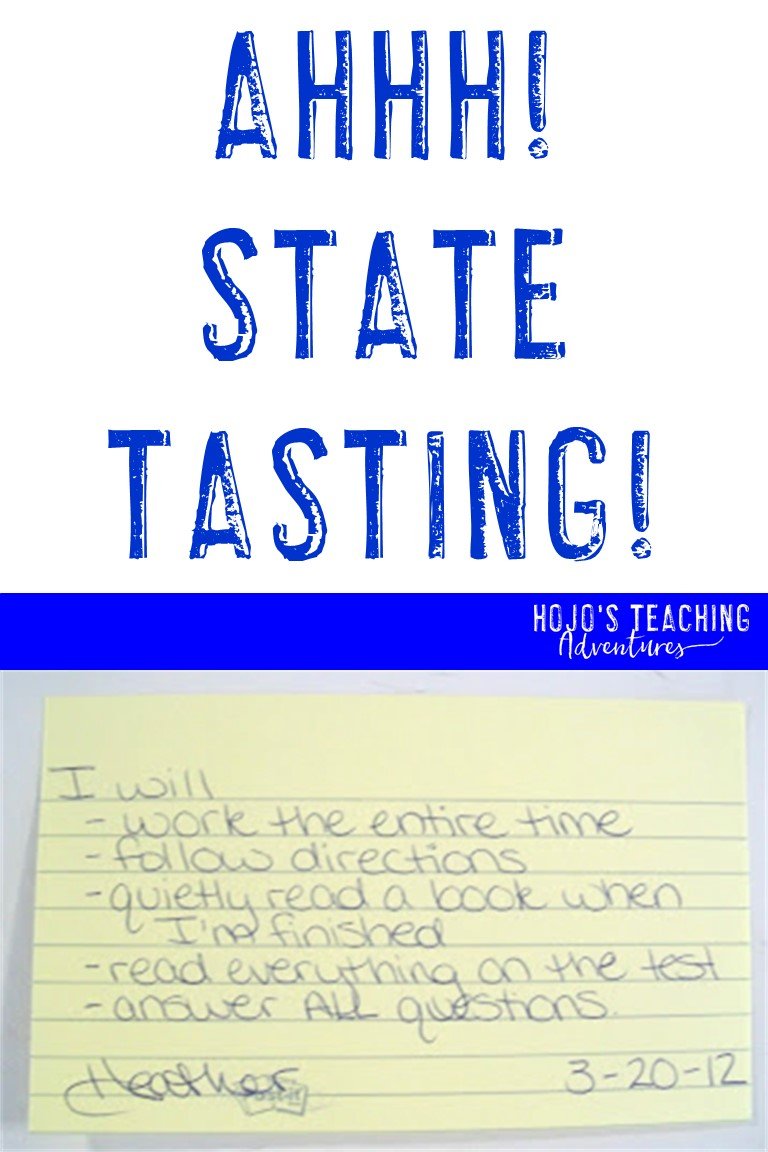 AHHH!
STATE
TASTING!
HOJO'S TEACHING
Adventures
I will
- work the entire time
- follow directions
- quietly read a book when
I'm finished
- read everything on the test
- answer ALL questions.
Heather
3-20-12